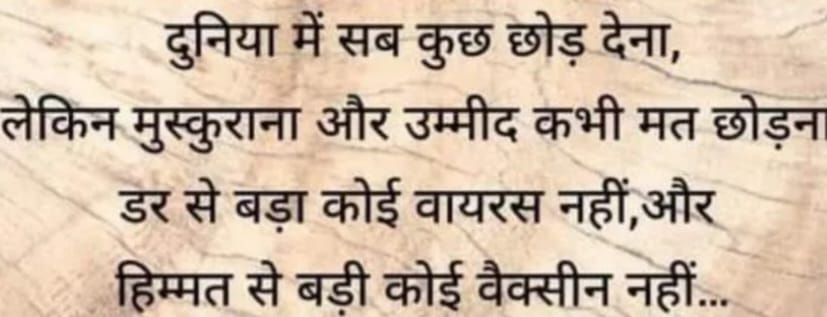 दुनिया में सब कुछ छोड़ देना,
लेकिन मुस्कुराना और उम्मीद कभी मत छोड़ना
डर से बड़ा कोई वायरस नहीं,और
हिम्मत से बड़ी कोई वैक्सीन नहीं...